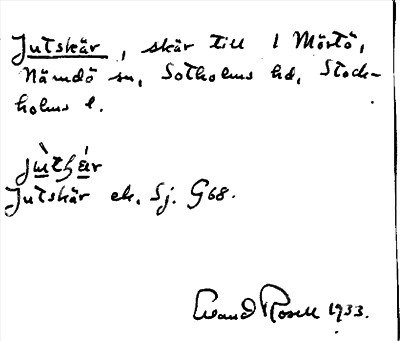 Jutskär, skär till 1 Mörtö,
Nämdö sn, Sotholms hd, Stock-
holms l.
Jutskär ek. Sj. G68.
Evand Rosell 1933.